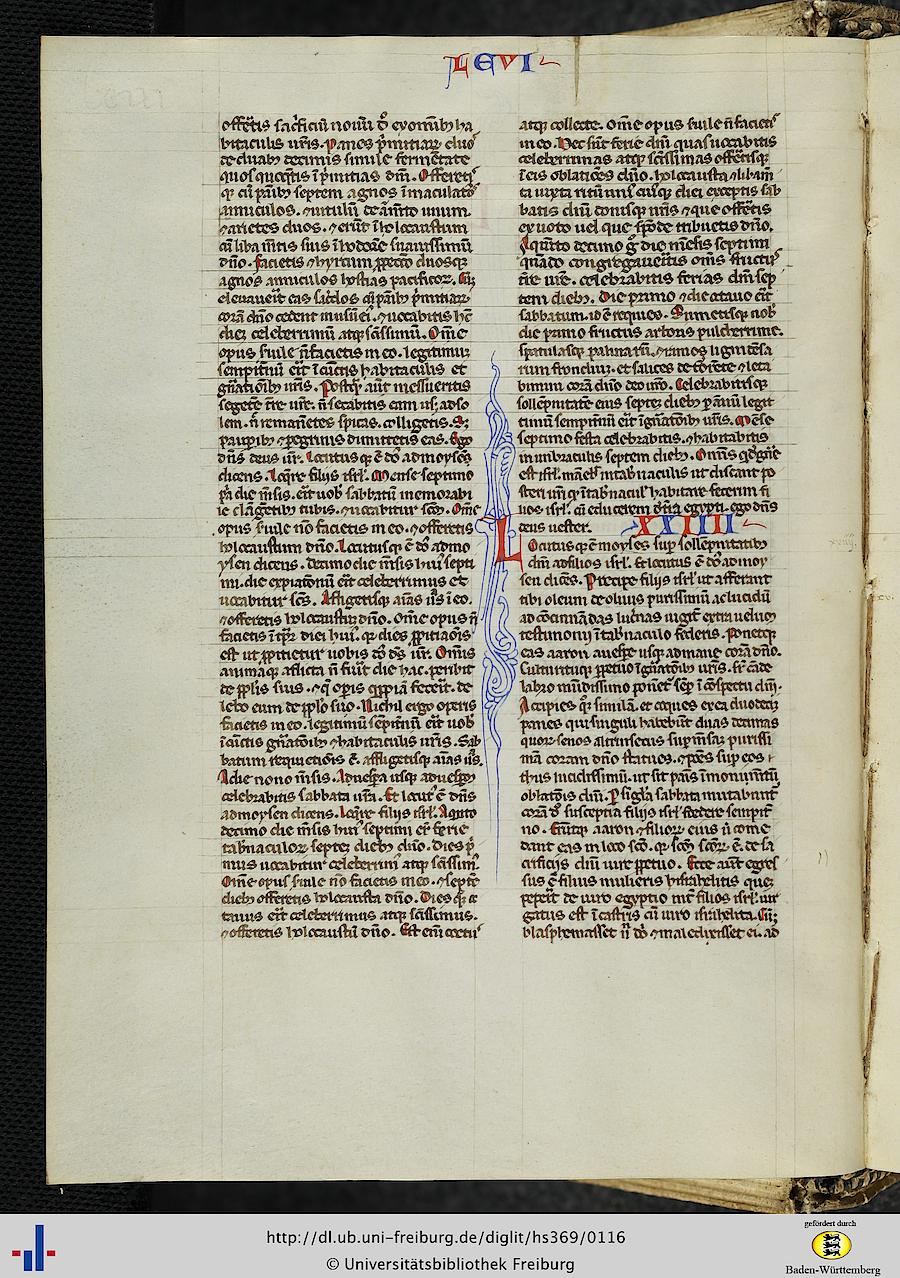 LEVI
offeretis sacrificiu novu dno ex omnib; ha
bitaculis vris. Panes primitiar duos
de duab; decimis simile fermetate
quos quoquetis i primitias dni. Offeretis
q; cu panib; septem agnos imaculatos
anniculos. & vitulu de armto unum.
& arietes duos. & erut i holocaustum
cu liba mtis suis i hodore suauissimu
dno. Facietis & hyrcum p peccato duosq;
agnos anniculos hostias pacificor. Cu;
eleuauerit eas sacerdos cu panib; primitiar
cora dno cedent i usu ei. & uocabitis hc
die celeberrimu atq; scissimu. Omne
opus seruile n facietis in eo. legitimu
sempitnu erit i cuctis habitaculis et
gnatioib; vris. Postq aut messueritis
segete tre vre. n secabitis eam usq; ad so
lem. n remanetes spicas. colligetis. S;
paupib; & pegrinis dimittetis eas. Ego
dns deus vr. Locutus q; e dns ad moysen
dicens. Loqre filiis isrl. Mense septimo
pa die msis. erit uob sabbatu memorabi
le clangetib; tubis. & uocabitur scm. Ome
opus seruile no facietis in eo. & offeretis
holocaustum dno. Locutus q; e dns ad mo
ysen dicens. Decimo die msis hui septi
mi. die expiationu erit celeberrimus et
uocabitur scs. Affligetisq; aias vras i eo.
& offeretis holocaustu dno. Ome opus n
facietis i tpr diei hui. q dies ppitiaois
est ut ppitietur uobis dns ds vr. Omnis
anima q aflicta n fuit die hac. peribit
de pplis suis. & q opis qppia fecerit. de
lebo eum de pplo suo. Nichil ergo operis
facietis in eo. legitimu sepitnu erit uob
i cuctis gnatoib; & habitaculis vris. Sab
batum requietionis e. affligetisq; aias vras.
A die nono msis. A uespera usq; ad uespam
celebrabitis sabbata vra. Et locut e dns
ad moysen dicens. Loqre filiis isrl. A quto
decimo die msis hui septimi ert ferie
tabnaculor septe dieb; dno. Dies p
mus uocabitur celeberrimu atq; scissimu.
Ome opus seruile no facietis in eo. & septe
dieb; offeretis holocausta dno. Dies q; oc
tauus erit celeberrimus atq; scissimus.
& offeretis holocaustu dno. Est eni coetus
atq; collecte. Ome opus seruile n facietis
in eo. Hec sut ferie dni quas uocabitis
celeberrimas atq; scissimas offeretisq;
i eis oblatioes dno. holocausta & libam
ta iuxta ritu uni cuiusq; diei exceptis sab
batis dni donisq; vris & que offeretis
ex uoto uel que spote tribuetis dno.
A quito decimo g die mesis septimi
quado congregaueritis oms fructus
tre vre. celebrabitis ferias dni sep
tem dieb;. Die primo & die octauo erit
sabbatum. id e requies. Sumetisq; uob
die primo fructus arboris pulcherrime.
spatulasq; palmaru. & ramos ligni desa
rum frondiu. et salices de torrete & leta
bimini cora dno deo vro. Celebrabitisq;
sollepnitate eius septe dieb; p annu legit
timu sempitnu erit i gnatoib; vris. Mese
septimo festa celebrabitis. & habitabitis
in umbraculis septem dieb;. Omis q de gne
est isrl. maneb in tabnaculis ut discant po
steri vri q i tabnacul habitare fecerim fi
lios isrl. cu educerem de tra egypti. ego dns
deus uester. XXIIII
Locutus q; e moyses sup sollepnitatib;
dni ad filios isrl. Et locutus e dns ad moy
sen dices. Precipe filiis isrl ut afferant
tibi oleum de oliuis purissimu ac lucidu
ad cocinnadas lucernas iugit extra uelum
testimonii i tabnaculo federis. Ponetq;
eas aaron a uespe usq; ad mane cora dno.
Cultu rituq; ppetuo i gnatoib; vris. Sr cade
labro mudissimo ponet sep i cospectu dni.
Accipies q simila. et coques ex ea duodeci
panes qui singuli habebut duas decimas
quor senos altrinsecus sup msa purissi
ma coram dno statues. & pones sup eos
thus lucidissimu. ut sit panis i monumtu
oblatois dni. P singla sabbata mutabunt
cora dno suscepta filiis isrl federe sempit
no. Eruntq; aaron & filior eius ut come
dant eas in loco sco. q scm scor e. de sa
crificiis dni iure ppetuo. Ecce aut egres
sus e filius mulieris hisrahelitis que
pepert de uiro egyptio int filios isrl iur
gatus est i castris cu uiro isrlhelita. Cu;
blasphemasset nom dni & maledixisset ei. ad
http://dl.ub.uni-freiburg.de/diglit/hs369/0116
© Universitätsbibliothek Freiburg
gefördert durch
Baden-Württemberg